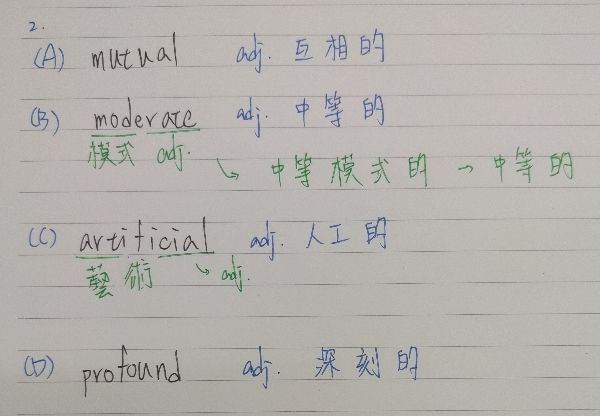 2.
(A) mutual adj. 互相的
(B) moderate adj. 中等的
模式 adj.
↘ 中等模式的 → 中等的
(C) artificial adj. 人工的
藝術 ↘ adj.
(D) profound adj. 深刻的